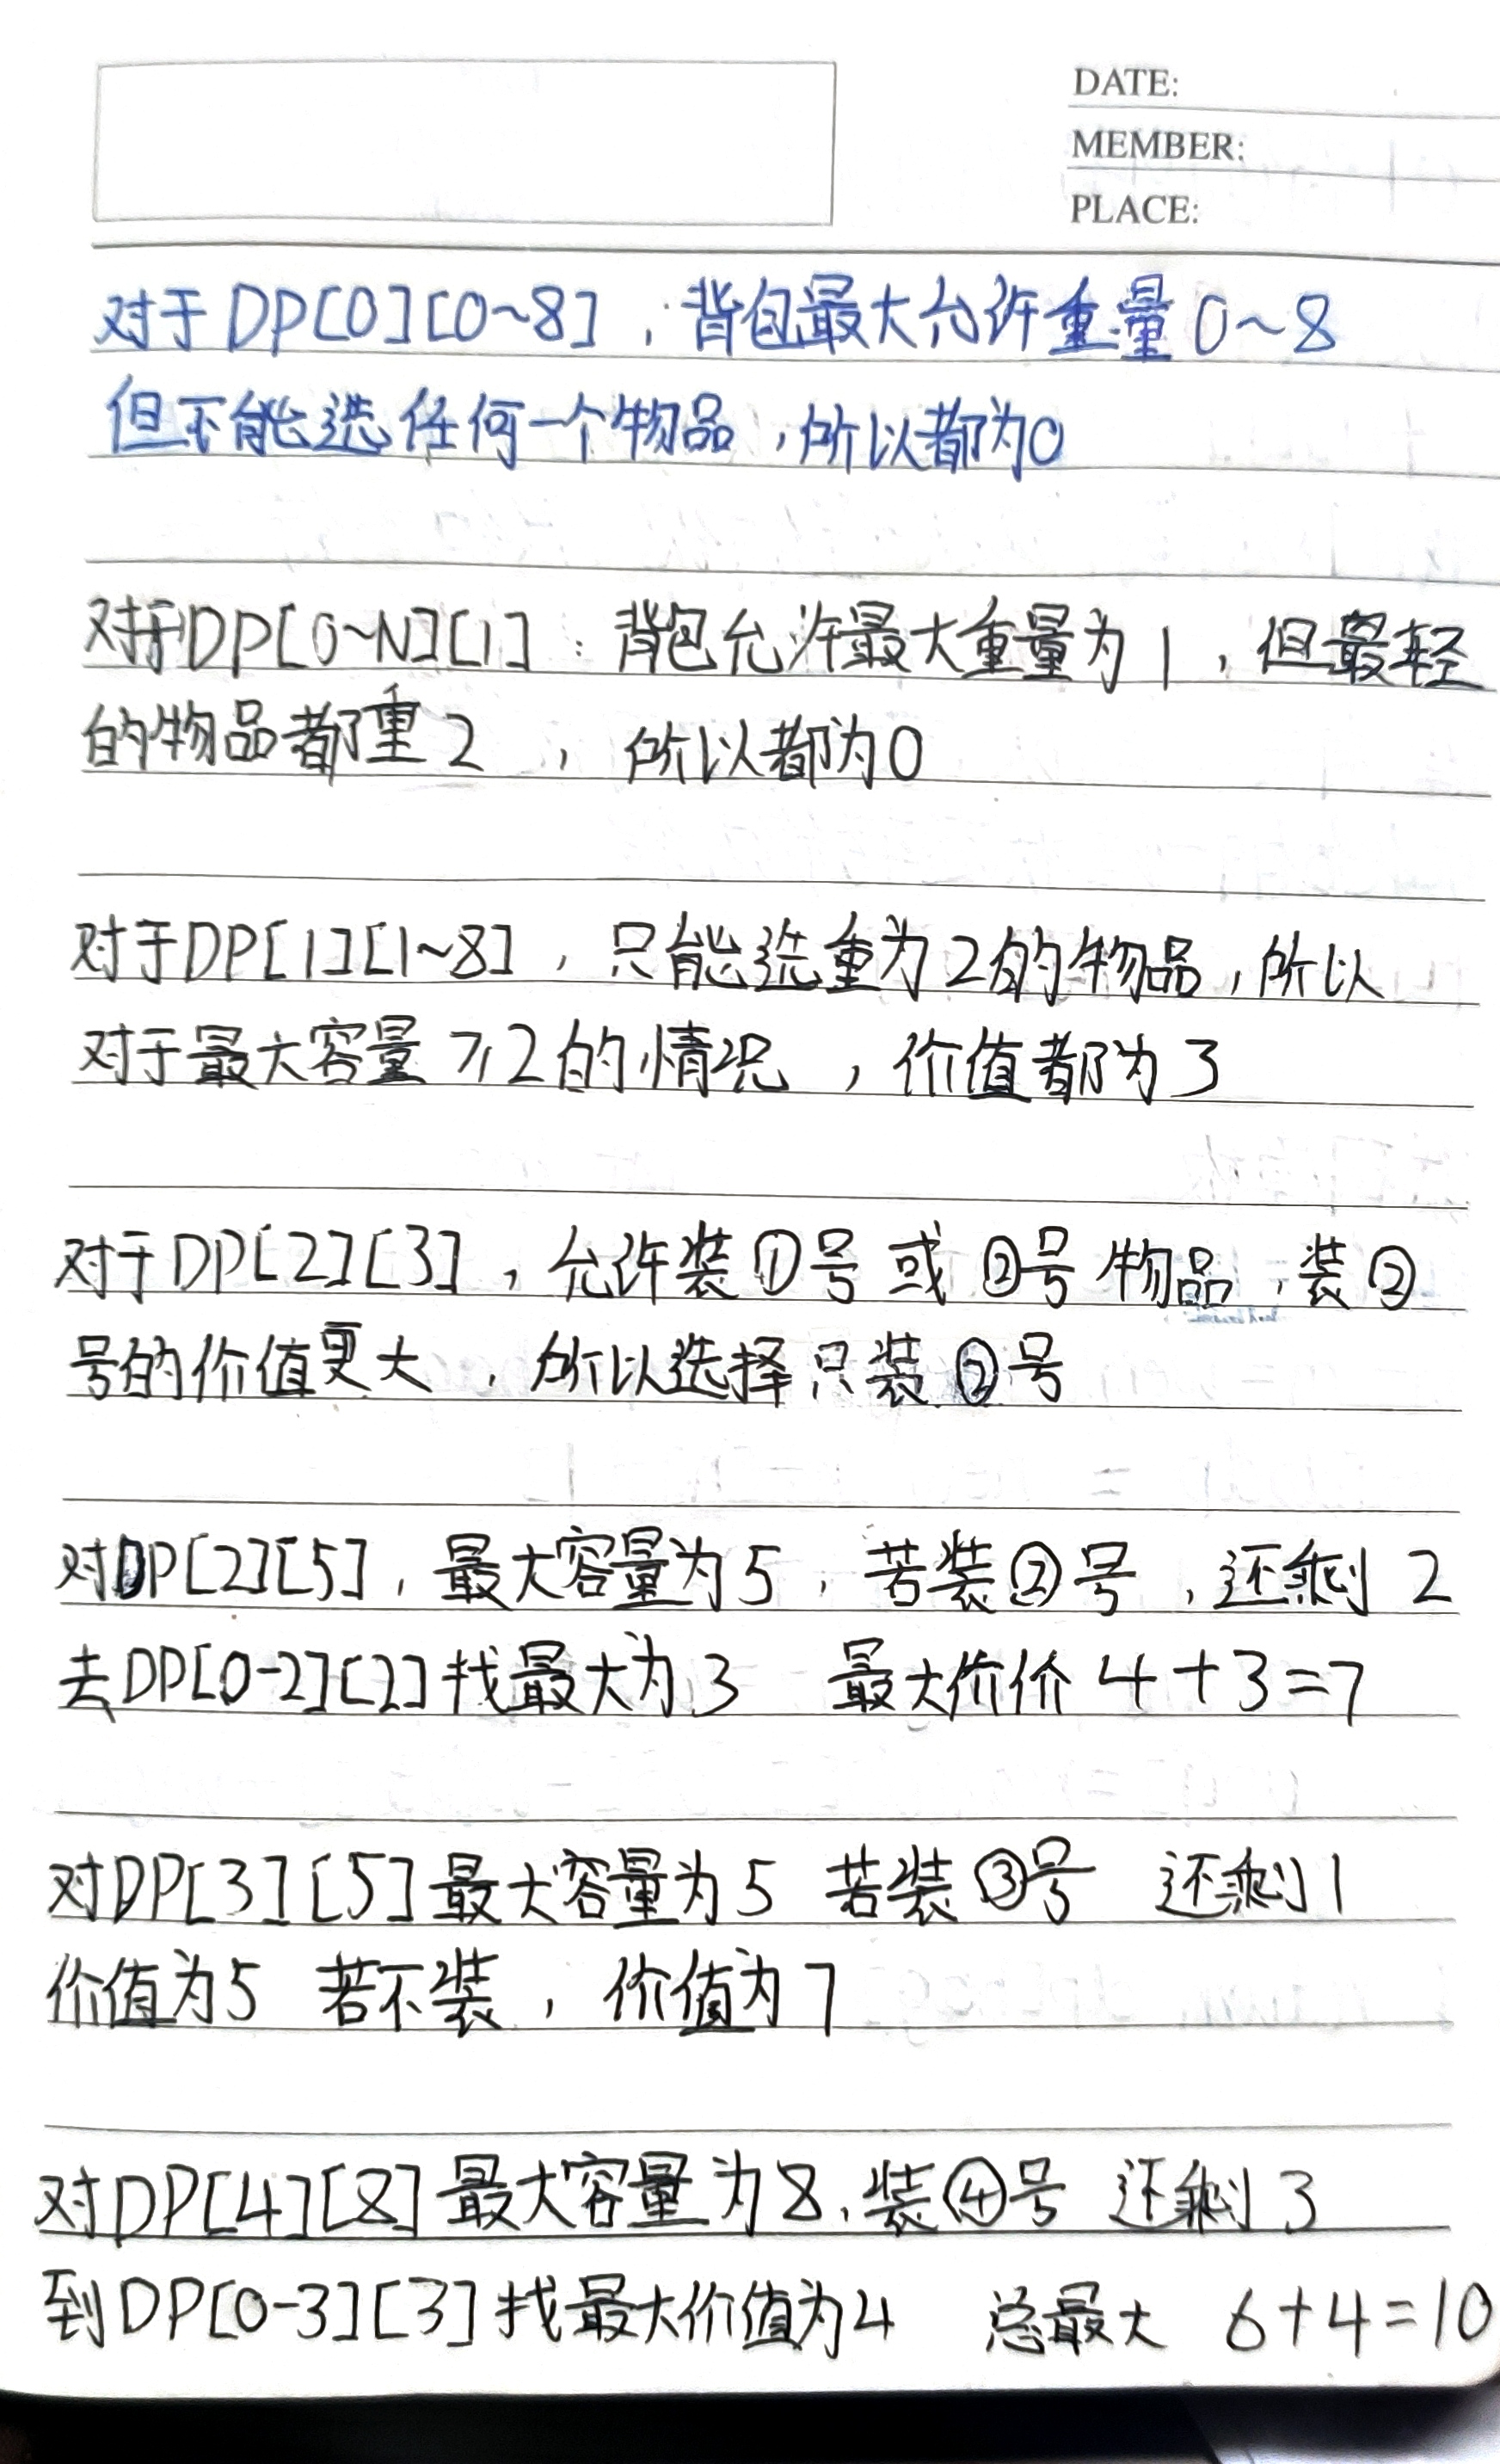 DATE:
MEMBER:
PLACE:
对于DP[0][0~8],背包最大允许重量0~8
但不能选任何一个物品,所以都为0
对于DP[0~N][1]:背包允许最大重量为1,但最轻
的物品都重2,所以都为0
对于DP[1][1~8],只能选重为2的物品,所以
对于最大容量≥2的情况,价值都为3
对于DP[2][3],允许装①号或②号物品,装②
号的价值更大,所以选择只装②号
对DP[2][5],最大容量为5,若装②号,还剩2
去DP[0-2][2]找最大为3 最大价价4+3=7
对DP[3][5]最大容量为5 若装③号 还剩1
价值为5 若不装,价值为7
对DP[4][8]最大容量为8,装④号 还剩3
到DP[0-3][3]找最大价值为4 总最大 6+4=10